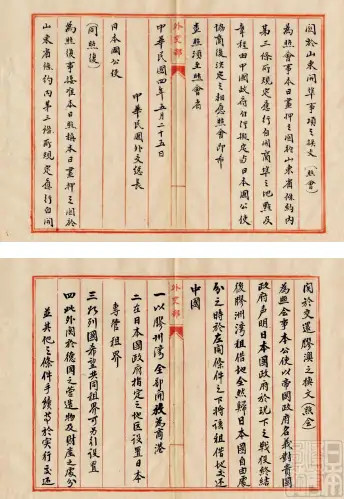 關於山東開埠事項之換文(照會)
為照會事本日畫押之關於山東省條約內
第三條所規定應行自開商埠之地點及
章程由中國政府自行擬定與日本國公使
協商後決定之相應照會即希
查照須至照會者
外交部
中華民國四年五月二十五日
中華民國外交總長
日本國公使
(同照復)
為照復事接准本日照稱本日畫押之關於
山東省條約內第三條所規定應行自開
關於交還膠澳之換文(照會)
為照會事本公使以帝國政府名義對貴國
政府聲明日本國政府於現下之戰役終結
後膠州灣租借地全然歸日本國自由處
分之時於左開條件之下將該租借地交還
中國
外交部
一以膠州灣全部開放為商港
二在日本國政府指定之地區設置日本
專管租界
三如列國希望共同租界可另行設置
四此外關於德國之營造物及財產之處分
並其他之條件手續等於實行交還